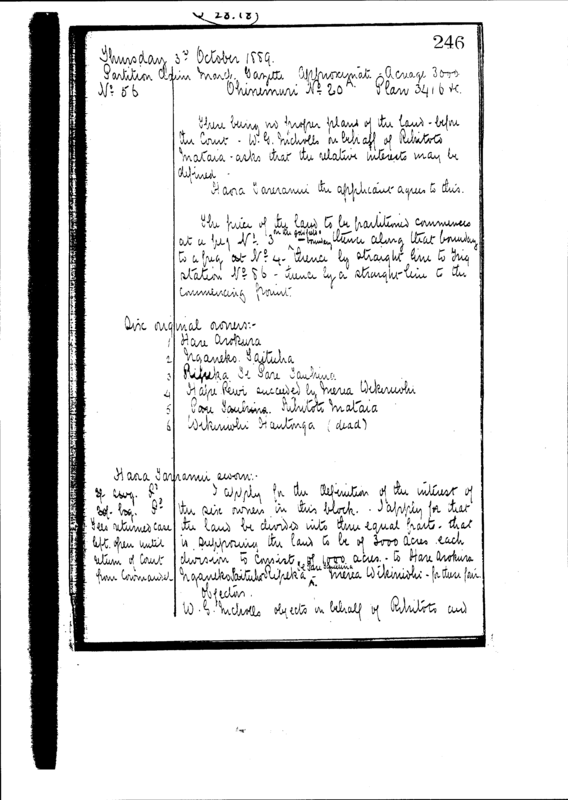 246
Thursday 3rd October 1889.
Partition Gazette Approximate Acreage 3000
No 56 Ohinemuri No 20 Plan 3416
There being no proper plans of the land before
the Court - W. G. Nicholls on behalf of Rihitoto
Mataia - asks that the relative interests may be
defined.
Hara Tareranui the applicant agrees to this.
The piece of the land to be partitioned commences
at a peg No. 3 on the boundary thence along that boundary
to a peg at No 4 - thence by straight line to Trig
station No 56 - thence by a straight line to the
commencing point.
Six original owners:-
1 Hare Arokura
2 Nganeko Taituha
3 Ripeka Te Pare Tauhina
4 Hape Rewi succeeded by Merea Wikiriwhi
5 Pare Rihitoto Mataia
6 Wikiriwhi Hautonga (dead)
Hara Tareranui sworn:-
I apply for the definition of the interest of
the six owners in this block. I apply for that
the land be divided into three equal parts - that
is supposing the land to be of 3000 acres each
division to consist of 1000 acres - to Hare Arokura
Nganeko Taituha Ripeka Te Pare Tauhina Merea Wikiriwhi
Fees returned case
left open until
return of Court
from Coromandel
Objectors.
W. G. Nicholls objects on behalf of Rihitoto and